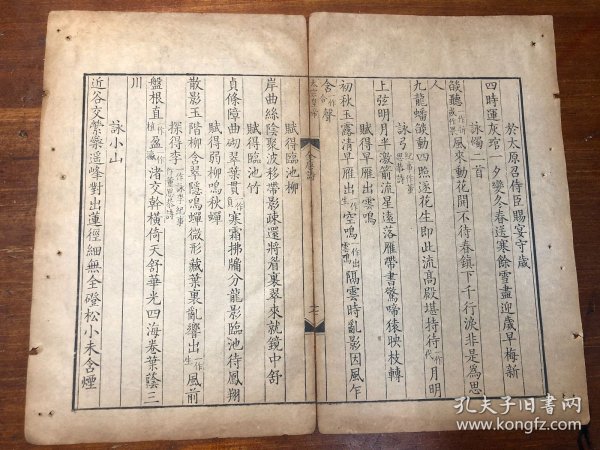 於太原召侍臣賜宴守歲
四時運灰琯一夕變冬春送寒餘雪盡迎歲早梅新
詠燭二首
燄聽風來動花開不待春鎮下千行淚非是為思
人
九龍蟠燄動四照逐花生即此流高殿堪持待一作代月明
詠弓紀事作董思恭詩
上弦明月半激箭流星遠落雁帶書驚啼猿映枝轉
賦得早雁出雲鳴
初秋玉露清早雁出一作生空鳴一作出雲鳴隔雲時亂影因風乍
含一作合聲
全唐詩
賦得臨池柳
岸曲絲陰聚波移帶影疎還將眉裏翠來就鏡中舒
賦得臨池竹
貞條障曲砌翠葉貫一作負寒霜拂牖分龍影臨池待鳳翔
賦得弱柳鳴秋蟬
散影玉階柳含翠隱鳴蟬微形藏葉裏亂響出一作生風前
探得李一作詠李紀事作董思恭詩
盤根直一作植盈一作瀛渚交幹橫倚天舒華光四海卷葉蔭三
川
詠小山
近谷交縈蘂遙峰對出蓮徑細無全磴松小未含煙
孔夫子旧书网
www.kongfz.com